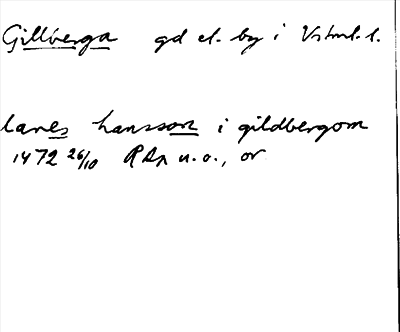 Gillberga gd el. by i Vstml. l.
lanes hansson i gildbergom
1472 26/10 RAp u. o., or